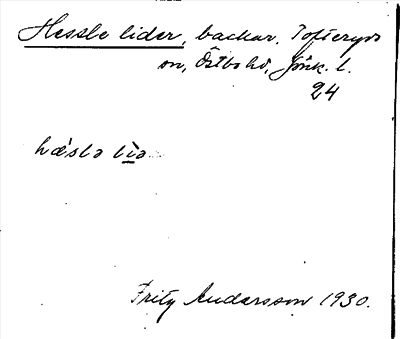 Hessle lider, backar, Tofteryds
sn, Östbo hd, Jönk. l.
24
hæ̀slə li̱ə
Fritz Andersson 1930.